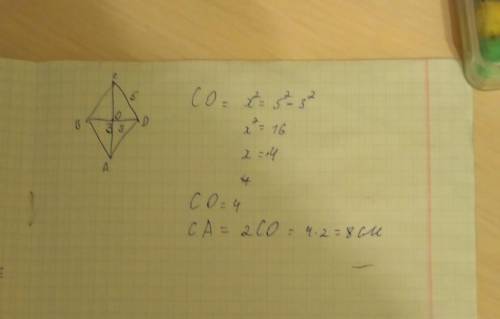 C
5
B O D
3 3
A
CO = x² = 5² - 3²
x² = 16
x = 4
4
CO = 4
CA = 2CO = 4·2 = 8см